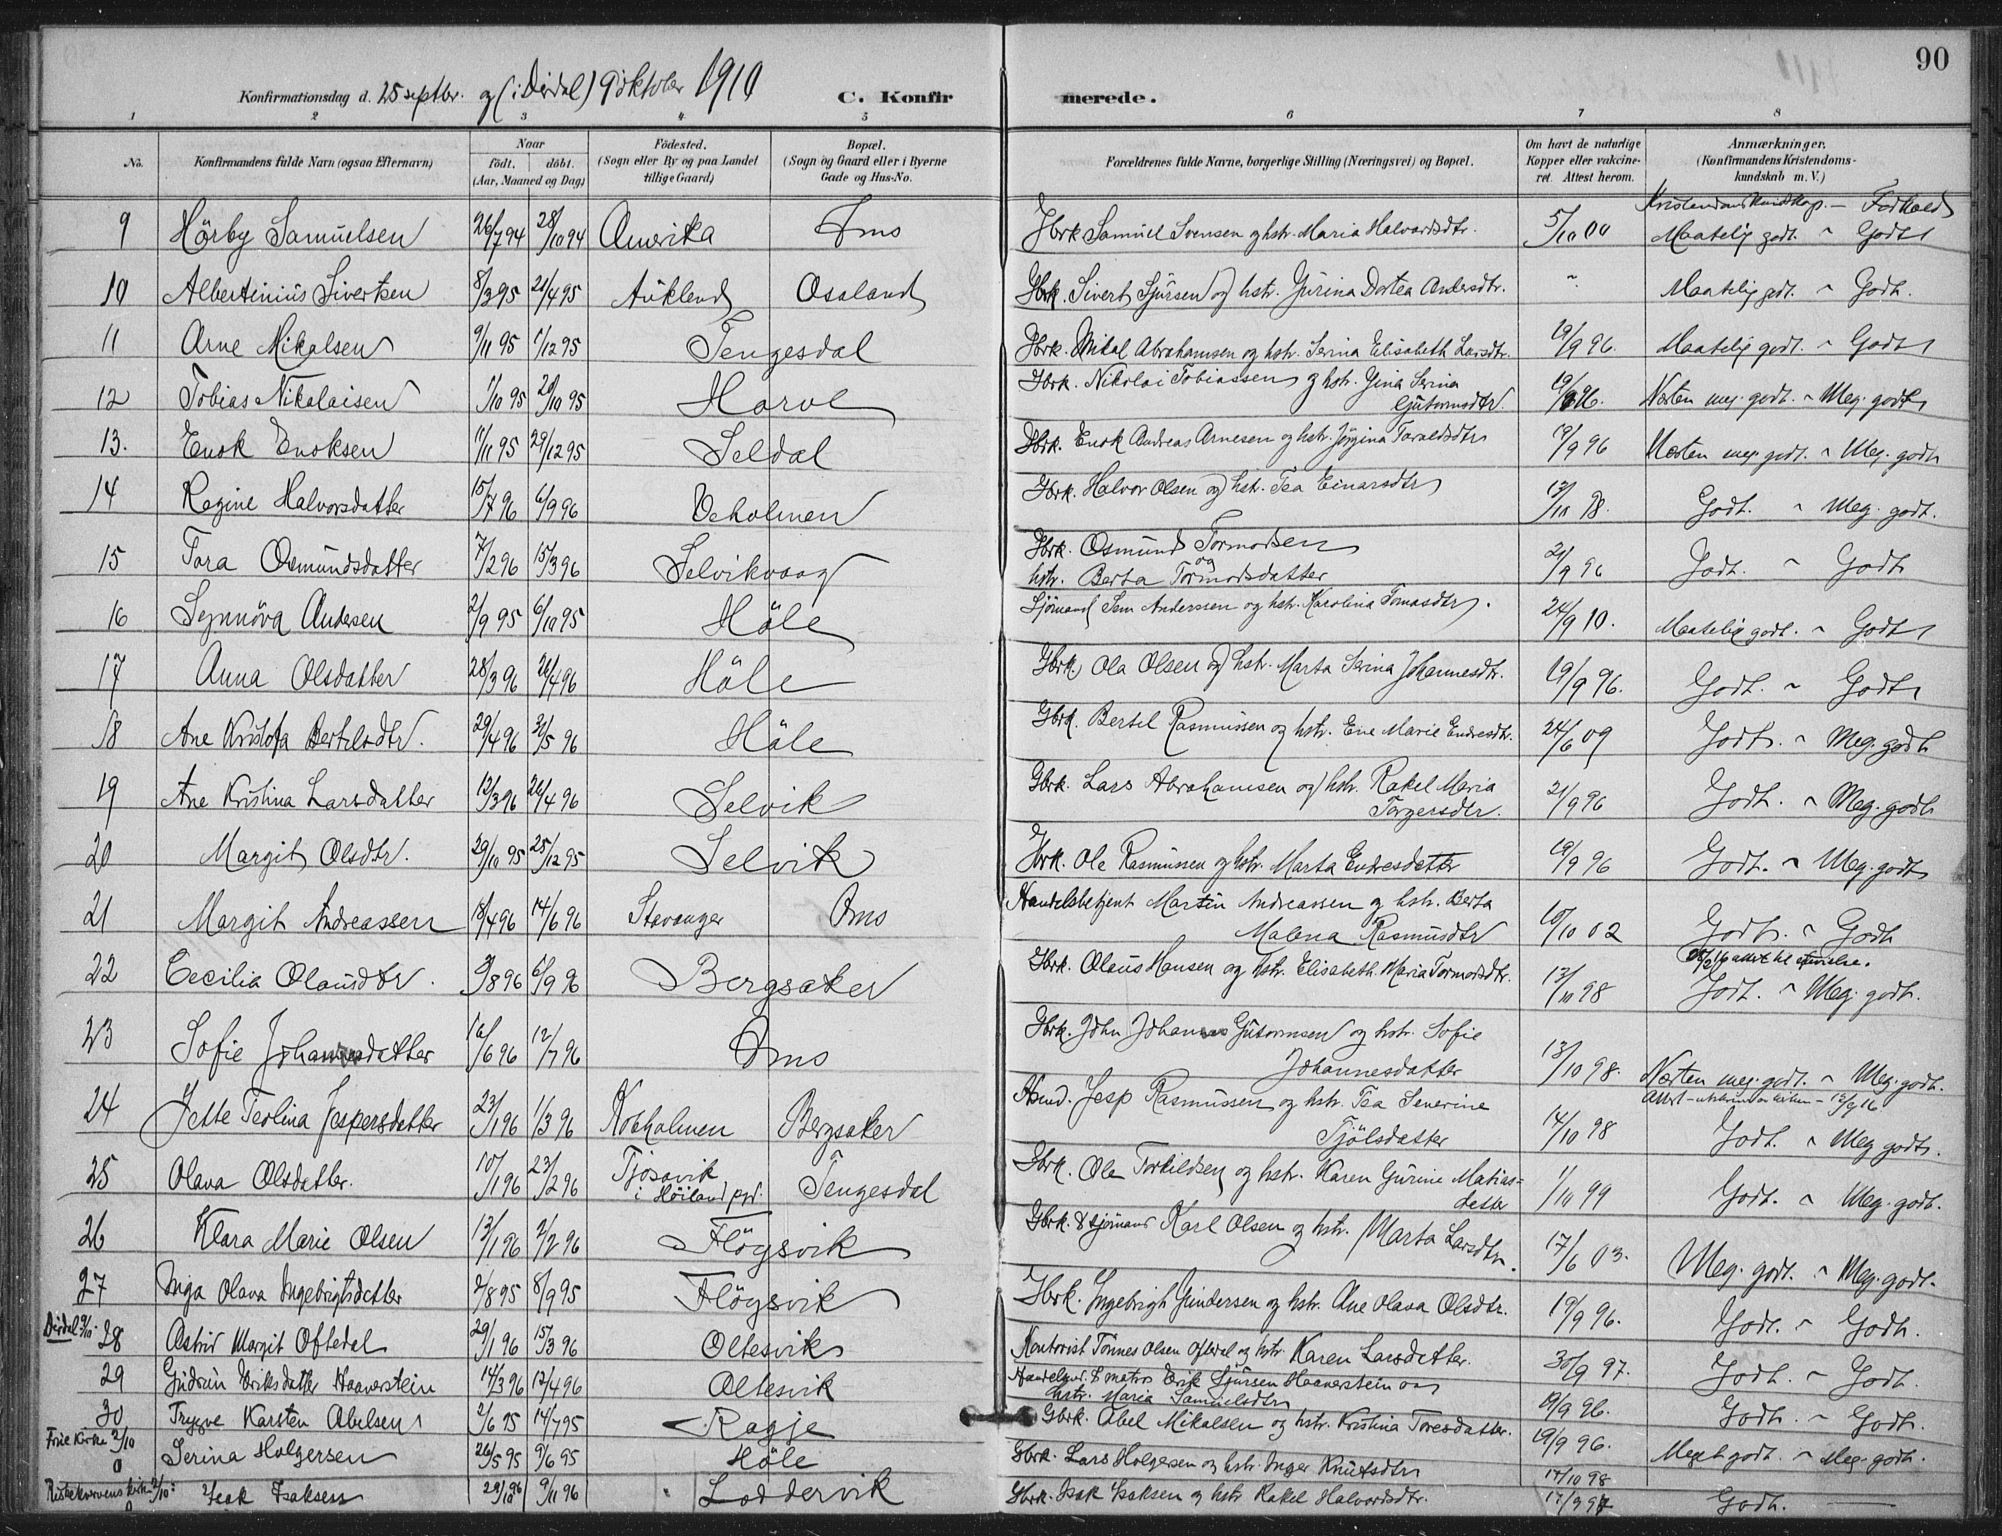 90
Konfirmationsdag d. 25 septbr. og (i Dirdal) 9 oktober 1910 C. Konfirmerede.
1 2 3 4 5 6 7 8
No. Konfirmandens fulde Navn (ogsaa Efternavn) Naar født. døbt. (Aar, Maaned og Dag) Fødested. (Sogn eller By og paa Landet tillige Gaard) Bopæl. (Sogn og Gaard eller i Byerne Gade og Hus-No. Forældrenes fulde Navne, borgerlige Stilling (Næringsvei) og Bopæl. Om havt de naturlige Kopper eller vakcineret. Attest herom. Anmærkninger. (Konfirmandens Kristendomskundskab m. V.)
Kristendomskundskap. — Forhold
9 Hörby Samuelsen 26/7 94 28/10 94 Amerika Ims Gbrk Samuel Svensen og hstr. Maria Halvardsdtr. 5/10 00 Maatelig godt. " Godt
10 Albertinius Sivertsen 8/3 95 21/4 95 Aukland Osaland Gbrk. Sivert Sjursen og hstr. Gurina Dortea Andersdtr. " Maatelig godt. " Godt.
11 Arne Mikalsen 9/11 95 1/12 95 Tengesdal Gbrk. Mikal Abrahamsen og hstr. Serina Elisabeth Larsdtr. 19/9 96. Maatelig godt. " Godt
12 Tobias Nikolaisen 1/10 95 20/10 95 Harve Gbrk. Nikolai Tobiassen og hstr. Gina Serina
Gutormsdtr. 19/9 96. Næsten meg. godt. " Meg. godt
13. Enok Enoksen 11/11 95 29/12 95 Seldal Gbrk. Enok Andreas Arnesen og hstr. Jörgina Taraldsdtr 19/9 96 Næsten meg. godt. " Meg. godt
14 Regine Halvorsdatter 15/7 96 6/9 96 Veholmen Gbrk. Halvor Olsen og hstr. Tea Einarsdtr 13/10 98. Godt. " Meg. godt.
15 Tora Osmundsdatter 7/2 96 15/3 96 Selvikvaag Gbrk. Osmund Tormodsen og
hstr. Berta Tormodsdatter 21/9 96 Godt. " Godt
16 Synnöva Andersen 2/9 95 6/10 95 Höle Sjömand Sem Anderssen og hstr. Karolina Tomasdtr. 24/9 10. Maatelig godt. " Godt
17 Anna Olsdatter 28/3 96 26/4 96 Höle Gbrk Ola Olsen og hstr. Marta Serina Johannesdtr. 19/9 96. Godt. " Godt
18 Ane Kristofa Bertelsdtr. 29/4 96 31/5 96 Höle Gbrk. Bertel Rasmussen og hstr. Ene Marie Endresdtr. 24/6 09 Godt. " Meg. godt
19 Ane Kristina Larsdatter 12/3 96 26/4 96 Selvik Gbrk. Lars Abrahamsen og hstr. Rakel Maria
Torgersdtr. 21/9 96 Godt. " Meg. godt
20 Margit Olsdtr. 29/10 95 25/12 95 Selvik Gbrk. Ole Rasmussen og hstr. Marta Endresdatter 19/9 96 Godt. " Meg. godt
21 Margit Andreassen 18/4 96 14/6 96 Stavanger Ims Handelsbetjent Martin Andreassen og hstr. Berta
Malena Rasmusdtr 10/10 02 Godt. " Godt
22 Cecilia Olausdtr. 3/8 96 6/9 96 Bergsaker Gbrk. Olaus Hansen og hstr. Elisabeth Maria Tormodsdtr. 13/10 98 Godt. " Meg. godt.
23 Sofie Johannesdatter 16/6 96 12/7 96 Ims Gbrk. John Johannes Gutormsen og hstr. Sofie
Johannesdatter 13/10 98. Næsten meg. godt. " Meg. godt.
24 Jette Teolina Jespersdatter 23/1 96 1/3 96 Kobholmen Bergsaker Hmd. Jesp Rasmussen og hstr. Tea Severine
Tjölsdatter 14/10 98 Godt. " Meg godt.
25 Olava Olsdatter. 10/1 96 23/2 96 Tjösavik i Höiland pgd. Tengesdal Gbrk. Ole Torkildsen og hstr. Karen Gurine Matias-
datter 1/10 99 Godt. " Meg. godt.
26 Klara Marie Olsen 13/1 96 2/2 96 Flögsvik Gbrk. & sjömand Karl Olsen og hstr. Marta Larsdtr. 17/6 03. Meg. godt. " Meg. godt.
27 Inga Olava Ingebrigtsdatter 2/8 95 8/9 95 Flögsvik Gbrk. Ingebrigt Gundersen og hstr. Ane Olava Olsdtr. 19/9 96. Godt. " Godt.
Dirdal 9/10. 28 Astrid Margit Oftedal 29/1 96 15/3 96 Oltesvik Kontorist Tönnes Olsen Oftedal og hstr. Karen Larsdatter. 30/9 97. Godt. " Godt.
29 Gudrun Eriksdatter Haaverstein 14/3 96 12/4 96 Oltesvik Erik Sjursen Haaverstein og
hstr. Maria Samuelsdtr 19/9 96. Godt. " Godt.
30 Trygve Karsten Abelsen 2/6 95 14/7 95 Ragje Gbrk. Abel Mikalsen og hstr. Kristina Toresdatter. 19/9 96. Meget godt. " Meg. godt.
Frie Kirke 2/10
0 Serina Holgersen 26/5 95 9/6 95 Höle Gbrk. Lars Holgersen og hstr. Inger Knutsdtr 17/10 98
0 Isak Isaksen 29/10 96 9/11 96 Loddervik Gbrk. Isak Isaksen og hstr Rakel Halvardsdtr. 17/9 97 Godt. —